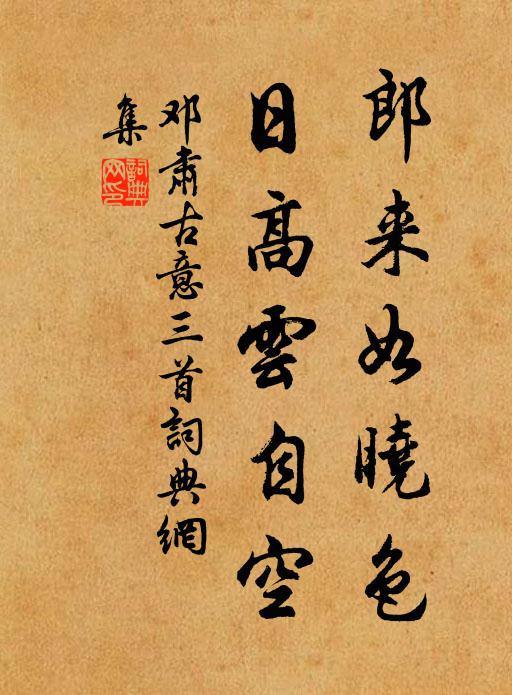 郎来如曉色
日高雲自空
邓肅古意三首詞典網
集
詞典網印